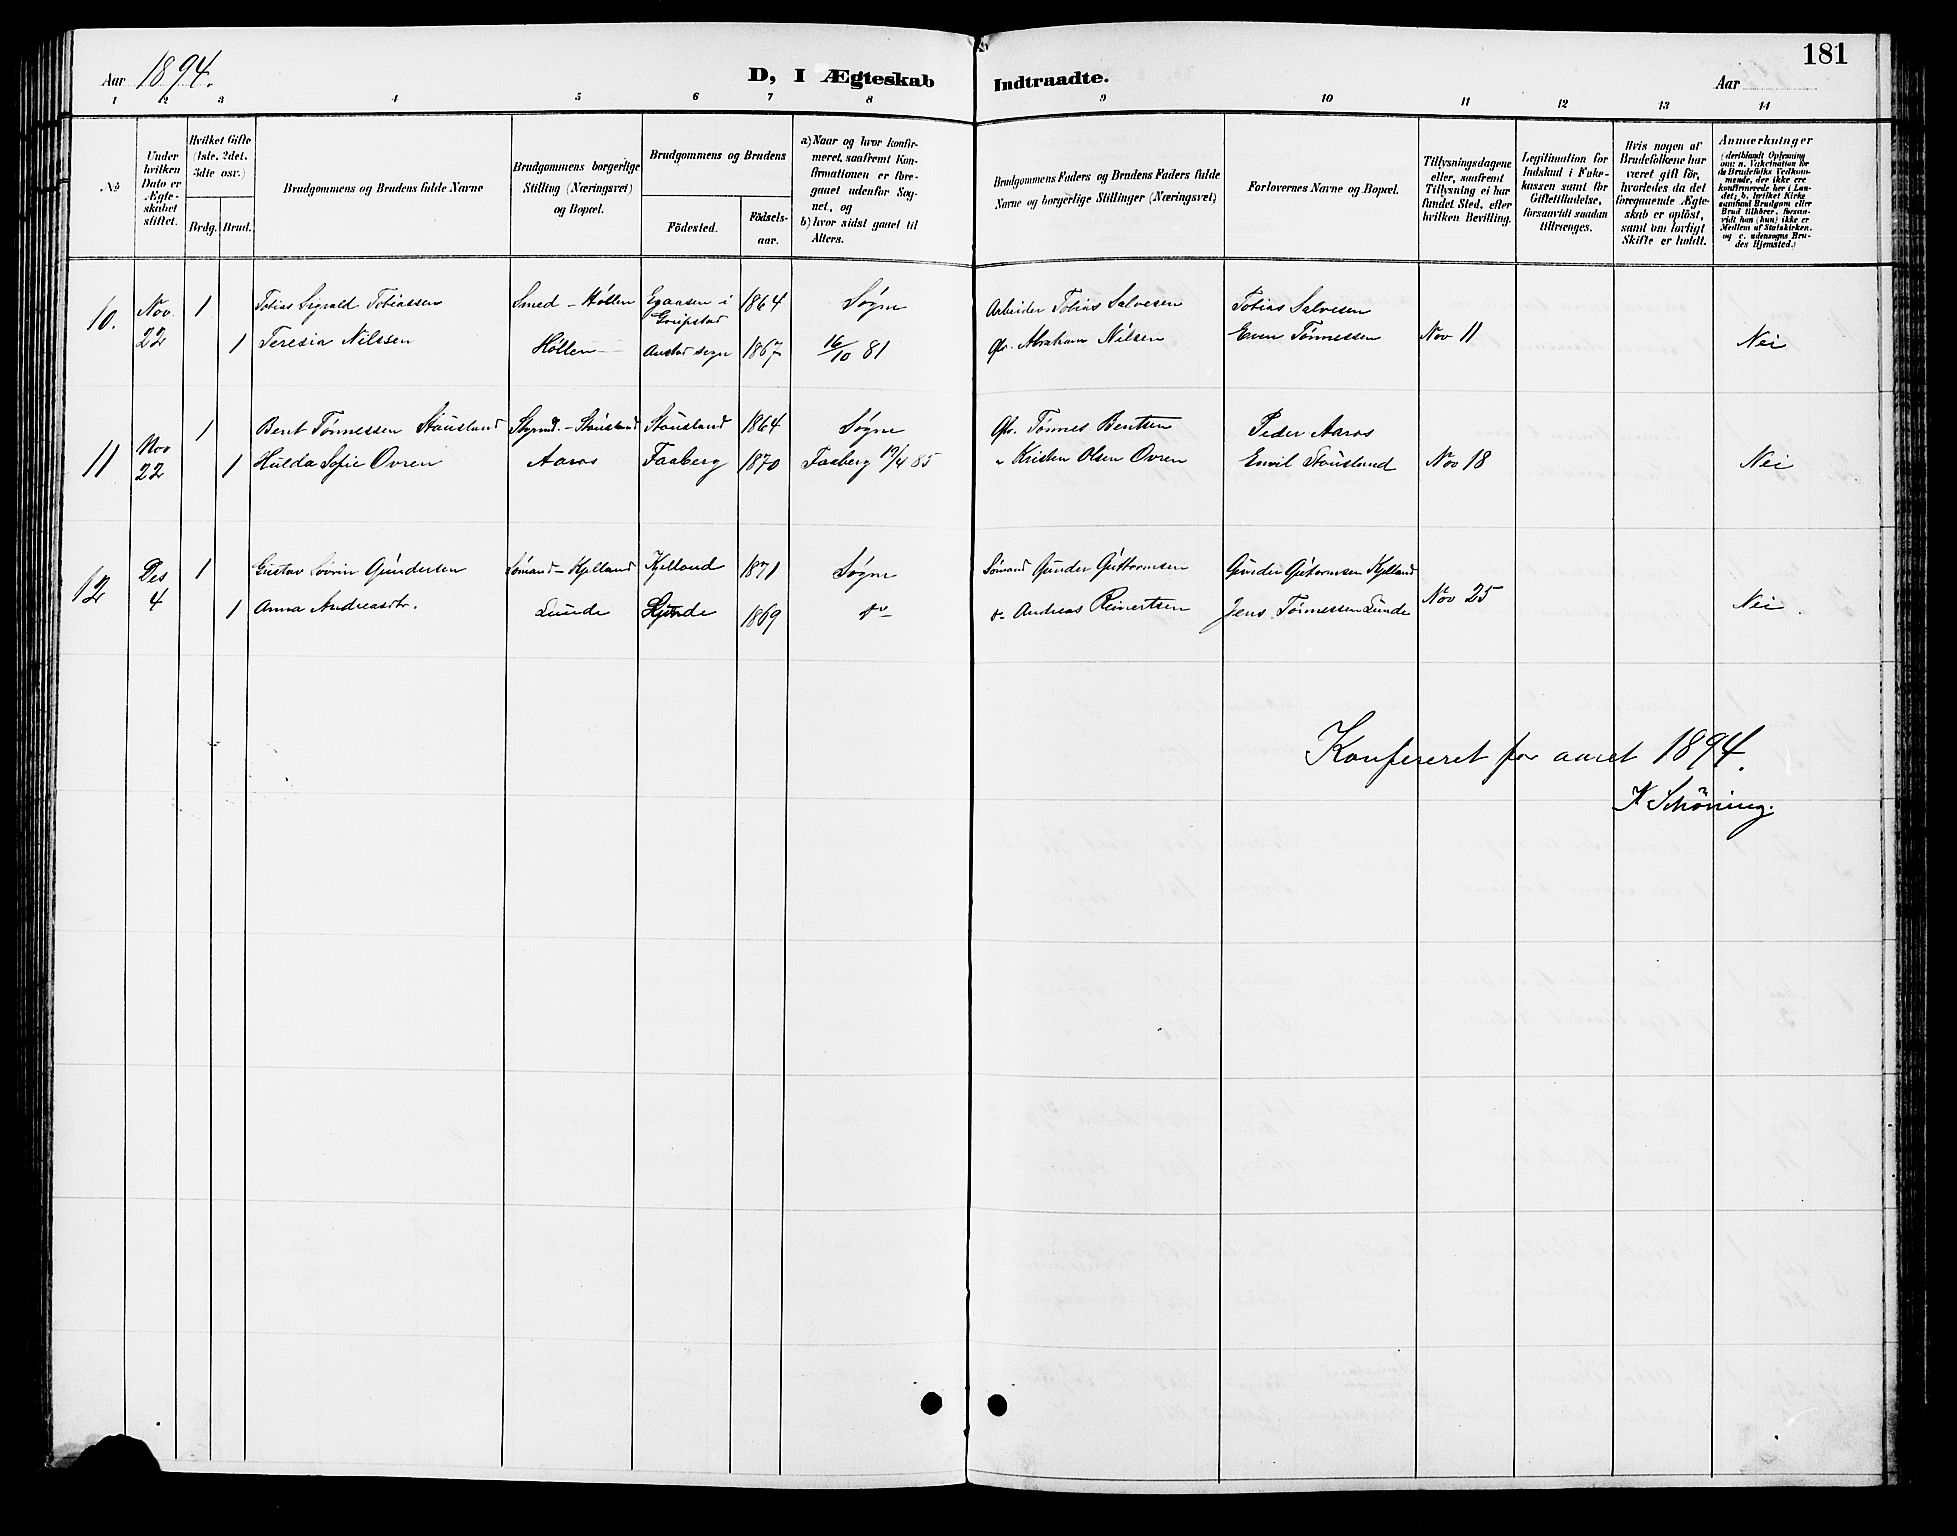 181
Aar 1894. D, I Ægteskab Indtraadte. Aar
1 2 3 4 5 6 7 8 9 10 11 12 13 14
No
Under hvilken Dato er Ægteskabet stiftet.
Hvilket Gifte (1ste, 2det, 3die osv.)
Brdg. Brud.
Brudgommens og Brudens fulde Navne
Brudgommens borgerlige Stilling (Næringsvei) og Bopæl.
Brudgommens og Brudens
Födested.
Födselsaar.
a) Naar og hvor konfirmeret, saafremt Konfirmationen er foregaaet udenför Sognet, og
b) hvor sidst gaaet til Alters.
Brudgommens Faders og Brudens Faders fulde Navne og borgerlige Stillinger (Næringsvei)
Forlovernes Navne og Bopæl.
Tillysningsdagene eller, saafremt Tillysning ei har fundet Sted, efter hvilken Bevilling.
Legitimation for Indskud i Enkekassen samt for Giftetilladelse, forsaavidt saadan tiltrænges.
Hvis nogen af Brudefolkene har været gift för, hvorledes da det foregaaende Ægteskab er oplöst, samt om lovligt Skifte er holdt.
Anmærkninger
(deriblandt Oplysning om: a. Vakcination for de Brudefolks Vedkommende, der ikke ere konfirmerede her i Landet; b. hvilket Kirkesamfund Brudgom eller Brud tilhörer, forsaavidt han (hun) ikke er Medlem af Statskirken, og c. udensogns Brudes Hjemsted.)
10. Nov 1 Tobias Sigvald Tobiassen Smed - Høllen Egaasen i Greipstad 1864 Søgne Arbeider Tobias Salvesen Tobias Salvesen
22 1 Teresia Nilssen Høllen - sogn 1867 16/10 81 Abraham Nilsen Even Tønnessen Nov 11 Nei
11 Nov 1 Bent Tønnessen Stausland Styrmd. - Stausland Stausland 1864 Søgne Gbr. Tønnes Bentsen Peder Aaros
22 1 Hulda Sofie Ovren Aaros Faaberg 1870 Faaberg 19/4 85 " Kristen Olsen Ovren Emil Stausland Nov 18 Nei
12 Des 1 Gustav Sövrin Gundersen Sömand - Kjelland Kjelland 1871 Søgne Sömand Gunder Guttormsen Gunder Gutormsen Kjelland
4 1 Anna Andreasdtr. Lunde Lunde 1869 do - Andreas Reinertsen Jens Tønnessen Lunde Nov 25 Nei.
Konfereret for aaret 1894.
K Schöning.